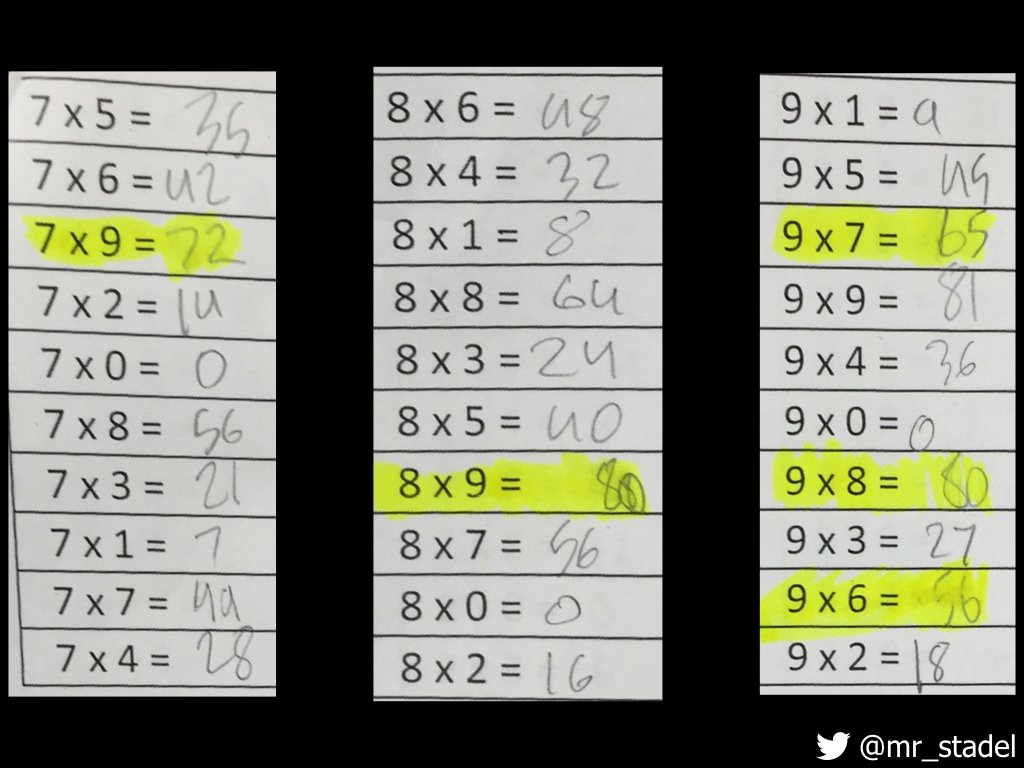 7 x 5 = 35
7 x 6 = 42
7 x 9 = 72
7 x 2 = 14
7 x 0 = 0
7 x 8 = 56
7 x 3 = 21
7 x 1 = 7
7 x 7 = 49
7 x 4 = 28
8 x 6 = 48
8 x 4 = 32
8 x 1 = 8
8 x 8 = 64
8 x 3 = 24
8 x 5 = 40
8 x 9 = 80
8 x 7 = 56
8 x 0 = 0
8 x 2 = 16
9 x 1 = 9
9 x 5 = 45
9 x 7 = 65
9 x 9 = 81
9 x 4 = 36
9 x 0 = 0
9 x 8 = 80
9 x 3 = 27
9 x 6 = 56
9 x 2 = 18
@mr_stadel